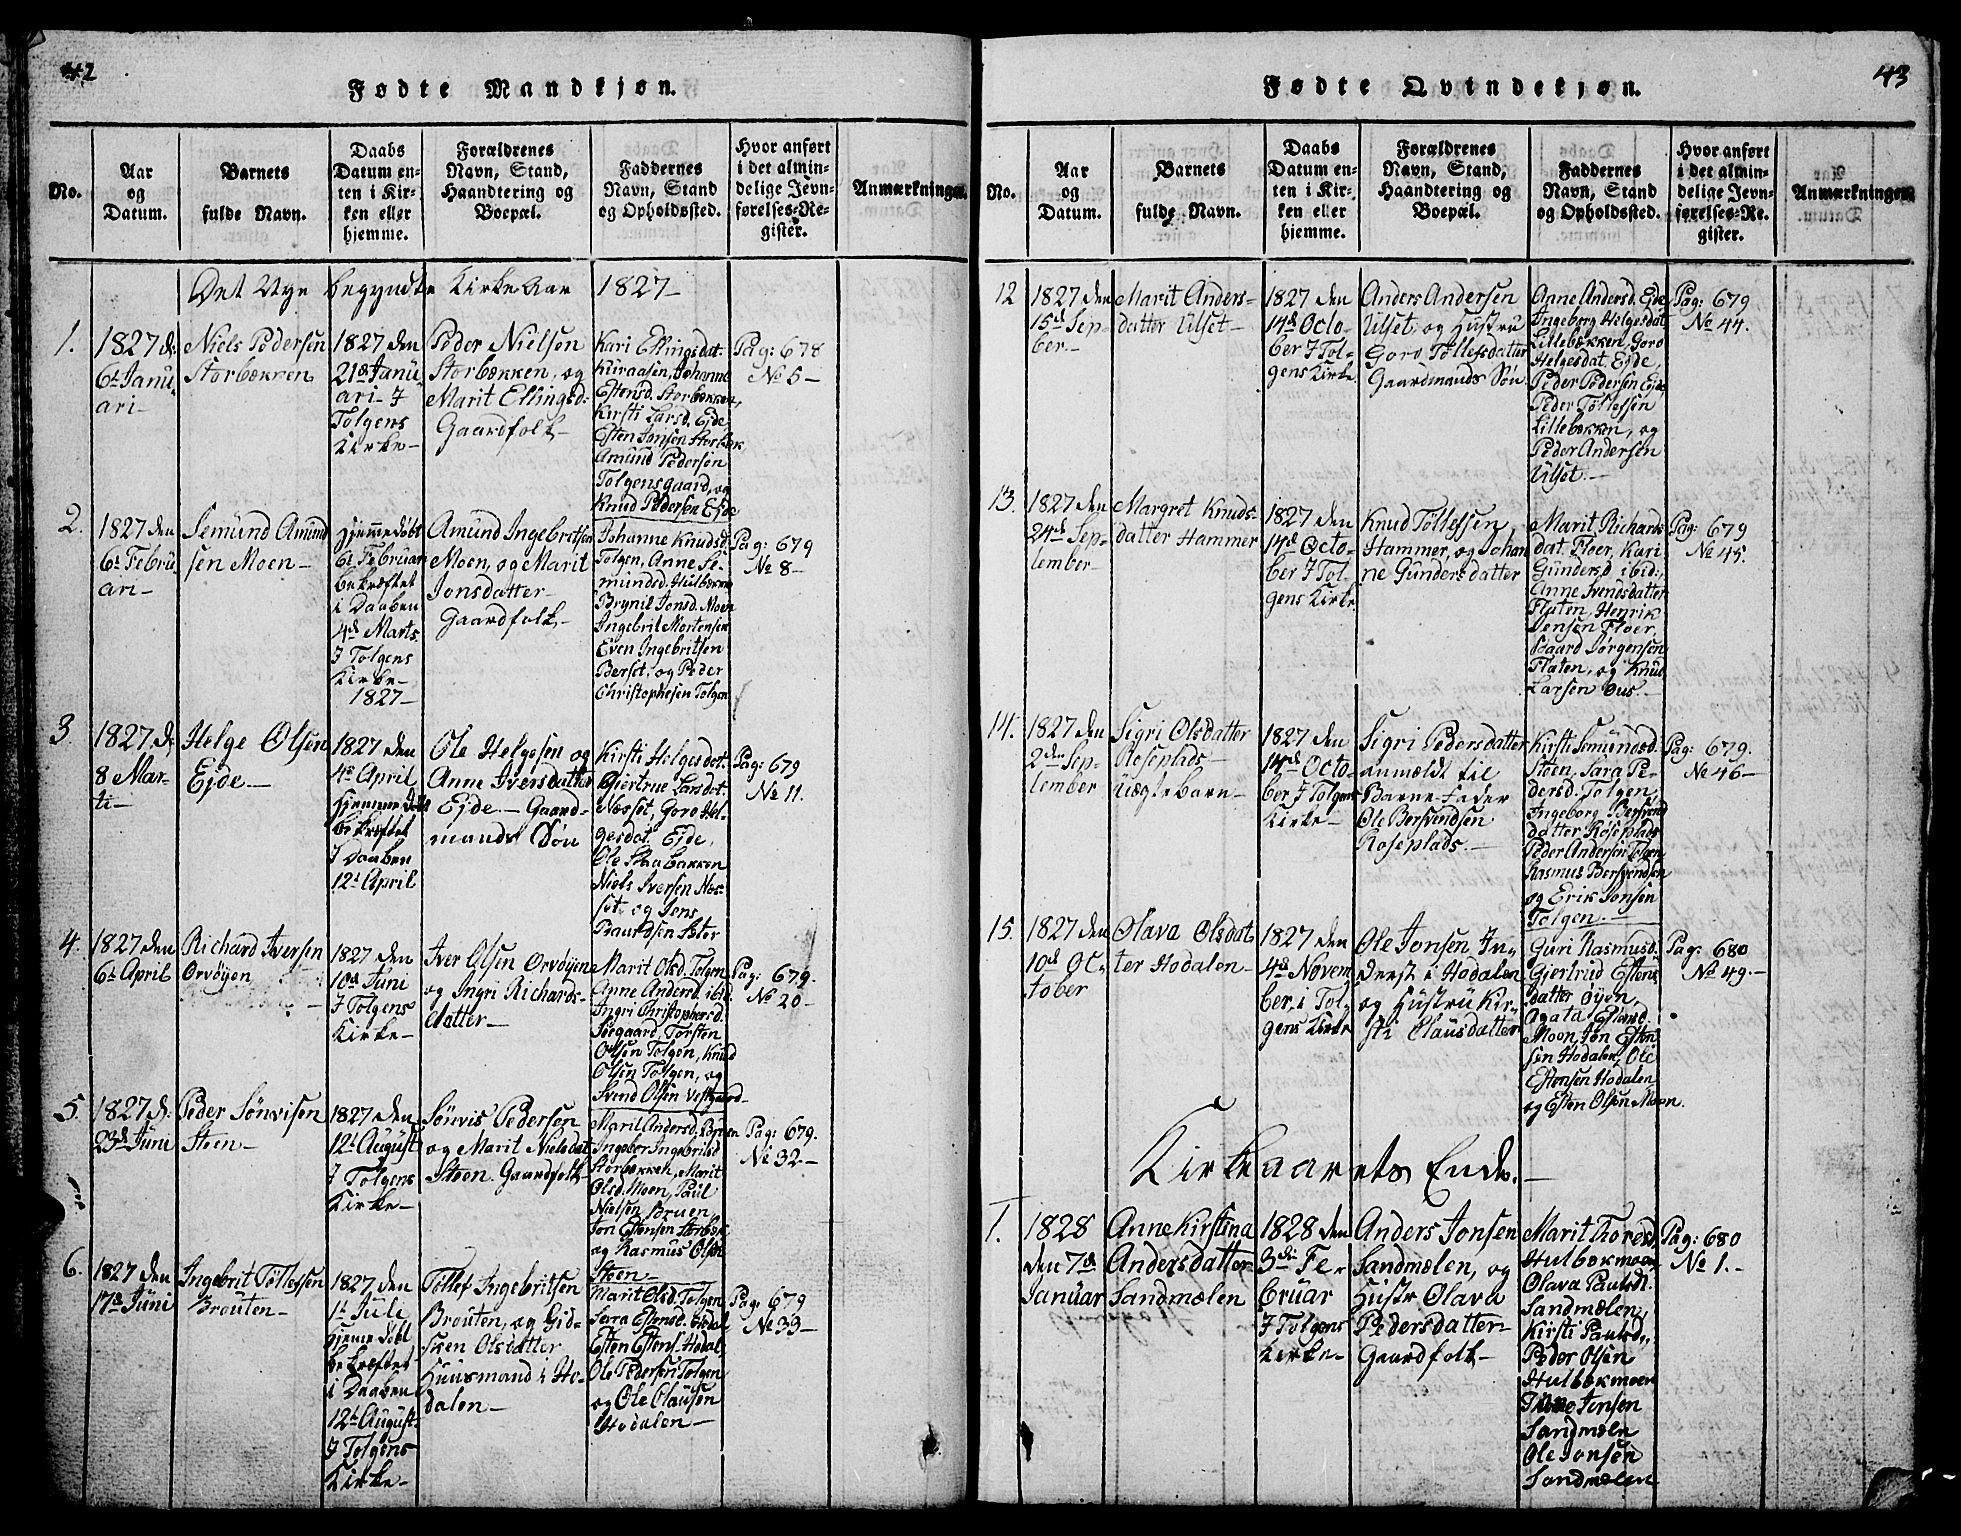 42
Fødte Mandkjøn.
No.
Aar
og
Datum.
Barnets
fulde Navn.
Daabs
Datum en-
ten i Kir-
ken eller
hjemme.
Forældrenes
Navn, Stand,
Haandtering og
Boepæl.
Faddernes
Navn, Stand
og Opholdssted.
Hvor anført
i det almin-
delige Jevn-
førelses-Re-
gister.
Anmærkninger.
Det Nye begyndte Kirke Aar 1827
1.
1827 d:
6t Janu
ari
Niels Pedersen
Storbækken
1827 den
21d Janu
ari I
Tolgens
Kirke
Peder Nielsen
Storbækken, og
Marit Ellingsd.
Gaardfolk
Kari Ellingsdat.
Kuraasen, Johanne
Estensd. Storbækken,
Kirsti Larsd. Ejde
Esten Jonsen Storbæk,
Amund Pedersen
Tolgensgaard, og
Knud Pedersen Ejde
Pag: 678
No 5
2.
1827 den
6t Febru
ari
Semund Amund
sen Moen
Hjemmedøbt
6t Februar
bekræftet
i Daaben
4d Marts
I Tolgens
Kirke
1827
Amund Ingebritsen
Moen, og Marit
Jonsdatter
Gaardfolk
Johanne Knudsd.
Tolgen, Anne Se-
mundsd. Hulbækken
Brynil Jonsd. Moen
Ingebrit Mortensen
Even Ingebritsen
Berset, og Peder
Christophesen Tolgen
Pag: 679
No 8
3.
1827 d:
8 Mar-
ti
Helge Olsen
Ejde
1827 den
4d April
Hjemmedøbt
bekræftet
I Daaben
12t April
Ole Helgesen og
Anne Iversdatter
Ejde. Gaard-
mands Søn
Kirsti Helgesdat.
Giertrue Larsdat.
Næsset, Goro Hel-
gesdat. Ejde,
Ole Bakken
Niels Iversen Næs-
set, og Jens
Baardsen
Pag: 679
No 11.
4.
1827 den
6t April
Richard Iversen
Orvøyen
1827 den
10d Juni
I Tolgens
Kirke
Iver Olsen Orvøyen
og Ingri Richards-
datter
Marit Olsd. Tolgen
Anne Andersd. ibid.
Ingri Christophersd.
Torsten
Olsen Tolgen, Knud
Olsen Tolgen, og
Svend Olsen Vestgaard
Pag: 679.
No 20
5.
1827 d:
23d Juni
Peder Sønvisen
Steen
1827 den
12t August
I Tolgens
Kirke
Sønvis Pedersen
og Marit Nielsdat.
Steen. Gaardfolk
Marit Andersd. Bruen
Ingebor Ingebritsd.
Storbækken, Marit
Olsd. Moen, Paul
Nielsen Bruen,
Jon Estensen Storbæk
og Rasmus Olsen
Steen
Pag: 679.
No 32
6.
1827 den
17d Juni
Ingebrit Tollefsen
Brouten
1827 den
1t Jule
Hjemmedøbt
bekræftet
i Daaben
12t August
I Tolgens
Kirke
Tollef Ingebritsen
Brouten, og Gid-
sken Olsdatter
Huusmand i Ho-
dalen
Marit Olsd. Tolgen
Sara Estensd. Hodal
Esten Estens. Hodal,
Ole Pedersen Tolgen
og Ole Clausen
Hodalen
Pag: 679
No 33
43
Fødte Qvindekjøn.
No.
Aar
og
Datum.
Barnets
fulde Navn.
Daabs
Datum en-
ten i Kir-
ken eller
hjemme.
Forældrenes
Navn, Stand,
Haandtering og
Boepæl.
Faddernes
Navn, Stand
og Opholdssted.
Hvor anført
i det almin-
delige Jevn-
førelses-Re-
gister.
Anmærkninger.
12
1827 den
15d Sep-
ber
Marit Anders-
datter Utset
1827 den
14d Octo-
ber I Tol-
gens Kirke
Anders Andersen
Utset, og Hustru
Goro Tollefsdatter
Gaardmands Søn
Anne Andersd. Ejde
Ingeborg Helgesdat.
Lillebækken, Goro
Helgesdat. Ejde,
Peder Pedersen Ejde
Peder Tollefsen
Lillebækken, og
Peder Andersen
Utset.
Pag: 679
No 44.
13.
1827 den
24d Sep-
tember
Margret Knuds-
datter Hammer
1827 den
14d Octo-
ber I Tol-
gens Kirke
Knud Tollefsen
Hammer, og Johan
ne Gundersdatter
Marit Richards-
dat. Floer, Kari
Gundersd. ibid.,
Anne Svendsdatter
Flaten, Henrik
Jensen Floer,
Baard Jørgensen
Flaten, og Knud
Larsen Aus
Pag: 679
No 45.
14.
1827 den
2den Sep-
tember
Sigri Olsdatter
Roseplads
Uægte barn
1827 den
14d Octo-
ber I Tolgens
Kirke
Sigri Pedersdatter
anmældt til
Barne-Fader
Ole Bersvendsen
Roseplads.
Kirsti Semundsd.
Steen, Sara Pe-
dersd. Tolgen,
Ingeborg Bersvend
datter Roseplads
Peder Andersen Tolgen
Rasmus Bersvendsen
og Erik Jonsen
Tolgen.
Pag: 679.
No 46
15.
1827 den
10d Oc-
tober
Olava Olsdat-
ter Hodalen
1827 den
4d Novem
ber, i Tol-
gens Kirke
Ole Jonsen In-
derst i Hodalen
og Hustru Kir-
sti Clausdatter
Guri Rasmusd.
Gjertrud Estens
datter Øyen,
Agata Estensd.
Moen, Jon Esten
sen Hodalen, Ole
Estensen Hodalen
og Esten Olsen Moen.
Pag: 680
No 49.
Kirkeaarets Ende.
1.
1828
den 7d
Januar
Anne Kirstina
Andersdatter
Sandmælen
1828 den
3die Fe-
bruar
I Tolgens
Kirke
Anders Jonsen
Sandmælen, og
Hustr Olava
Pedersdatter
Gaardfolk
Marit Toresd.
Hulbækmoen
Olava Paulsd.
Sandmælen,
Kirsti Paulsd.,
Peder Olsen
Hulbækmoen
Jonsen
Sandmælen
Ole Jonsen
Sandmælen
Pag: 680
No 1.